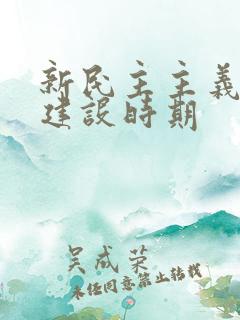 新民主主義
建設時期
吴成荣
未经同意禁止转载